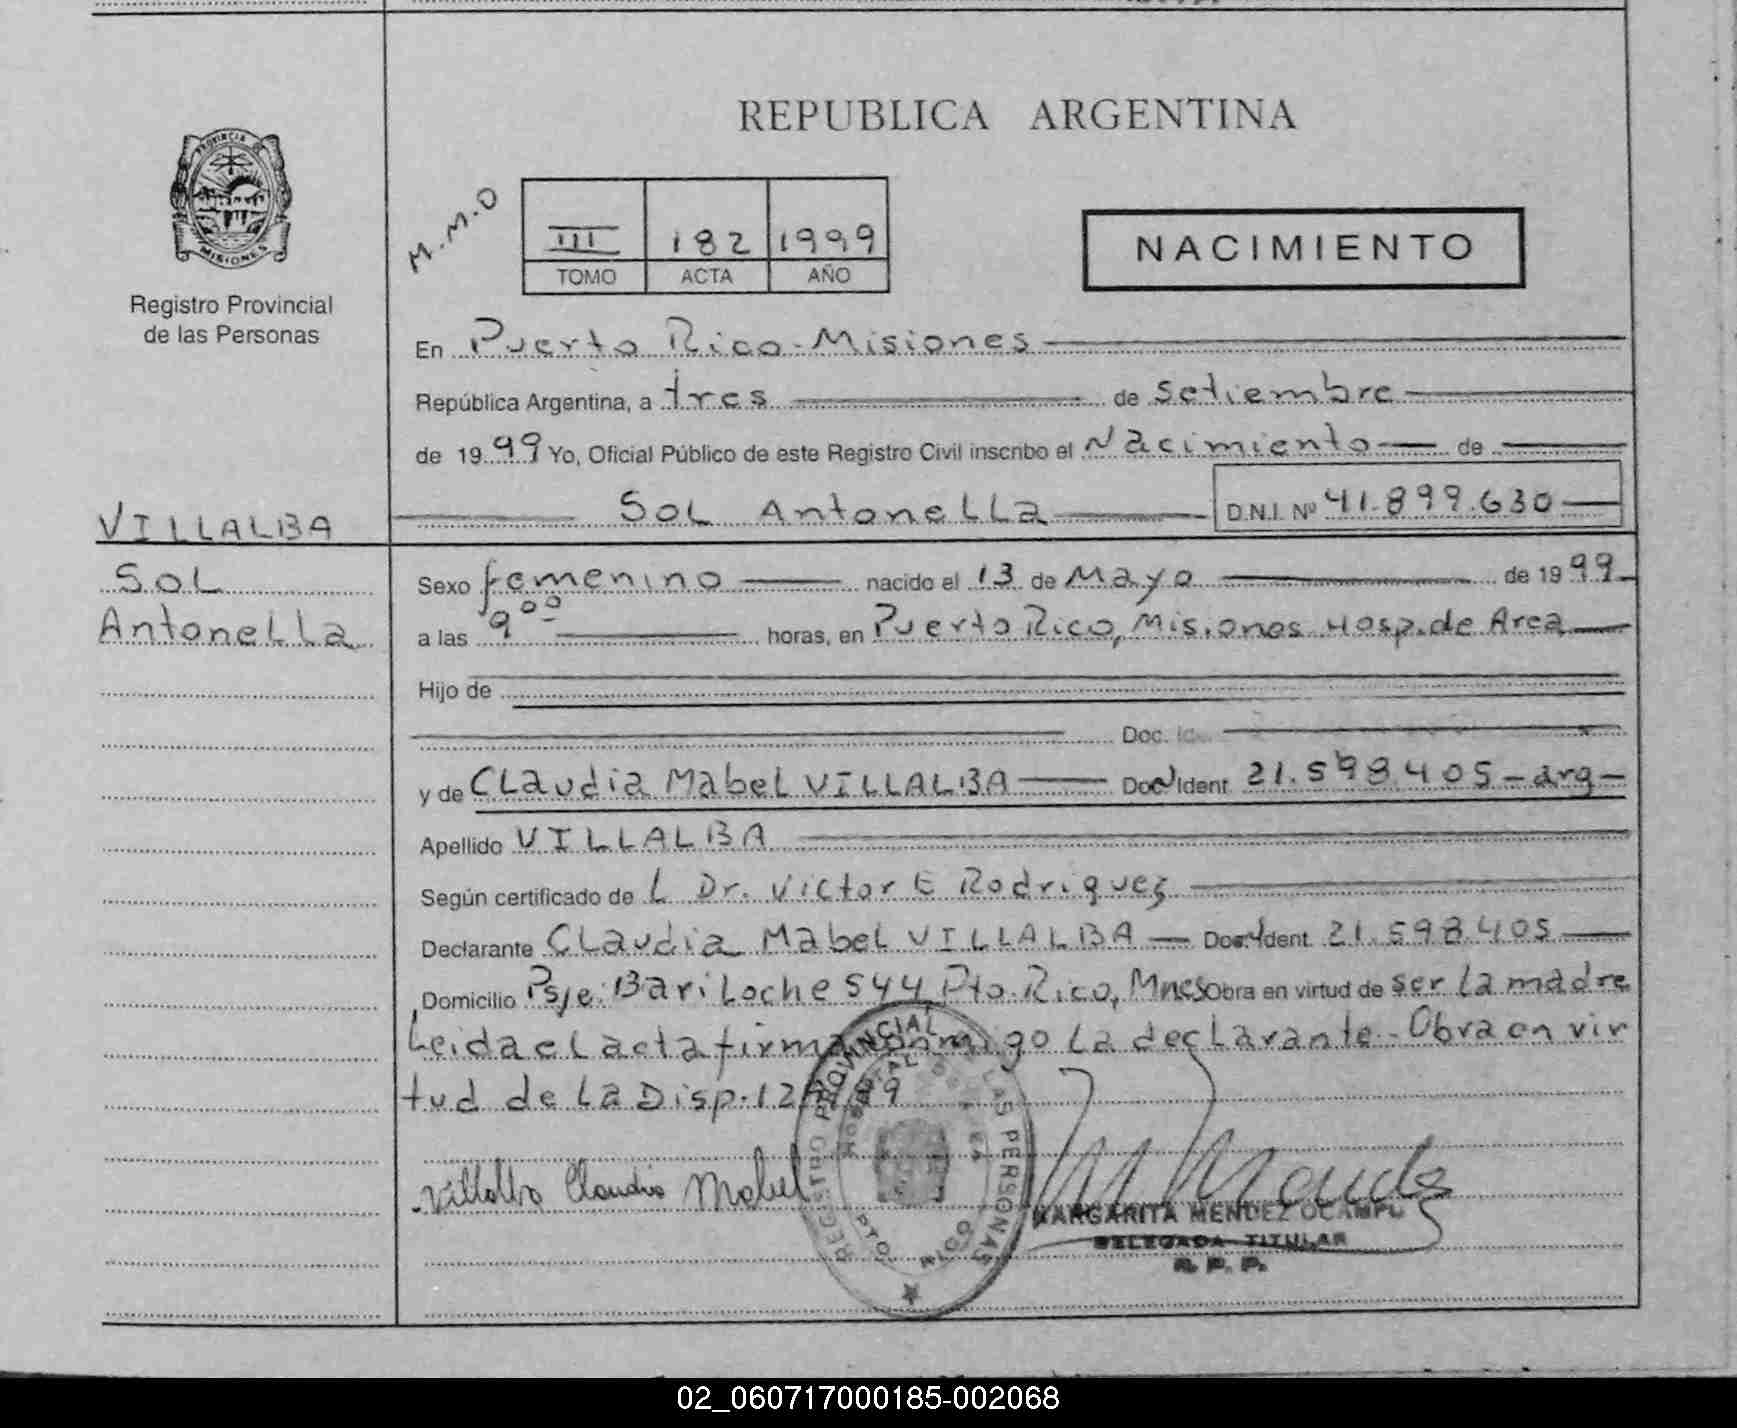 REPUBLICA ARGENTINA
PROVINCIA DE
MISIONES
Registro Provincial
de las Personas
M.M.O
III 182 1999
TOMO ACTA AÑO
NACIMIENTO
En Puerto Rico-Misiones
República Argentina, a tres de setiembre
de 1999 Yo, Oficial Público de este Registro Civil inscribo el Nacimiento de
VILLALBA
SOL AntoneLLa D.N.I. Nº 41.899.630
SOL
AntoneLLa
Sexo femenino nacido el 13 de Mayo de 1999
a las 9⁰⁰ horas, en Puerto Rico, Misiones Hosp. de Area
Hijo de
Doc.
y de CLaudia MabeL VILLALBA Doc Ident 21.598.405-arg-
Apellido VILLALBA
Según certificado de L Dr. Victor E Rodriguez
Declarante CLaudia MabeL VILLALBA Doc. Ident. 21.598.405
Domicilio Psje. BariLoche 544 Pto. Rico, Mnes Obra en virtud de ser La madre
Leida el acta firma conmigo La decLarante-Obra en vir
tud de La Disp. 12
Villalba Claudia Mabel
REGISTRO PROVINCIAL DE LAS PERSONAS
PTO RICO
MARGARITA MENDEZ OCAMPO
DELEGADA TITULAR
R. P. P.
02_060717000185-002068